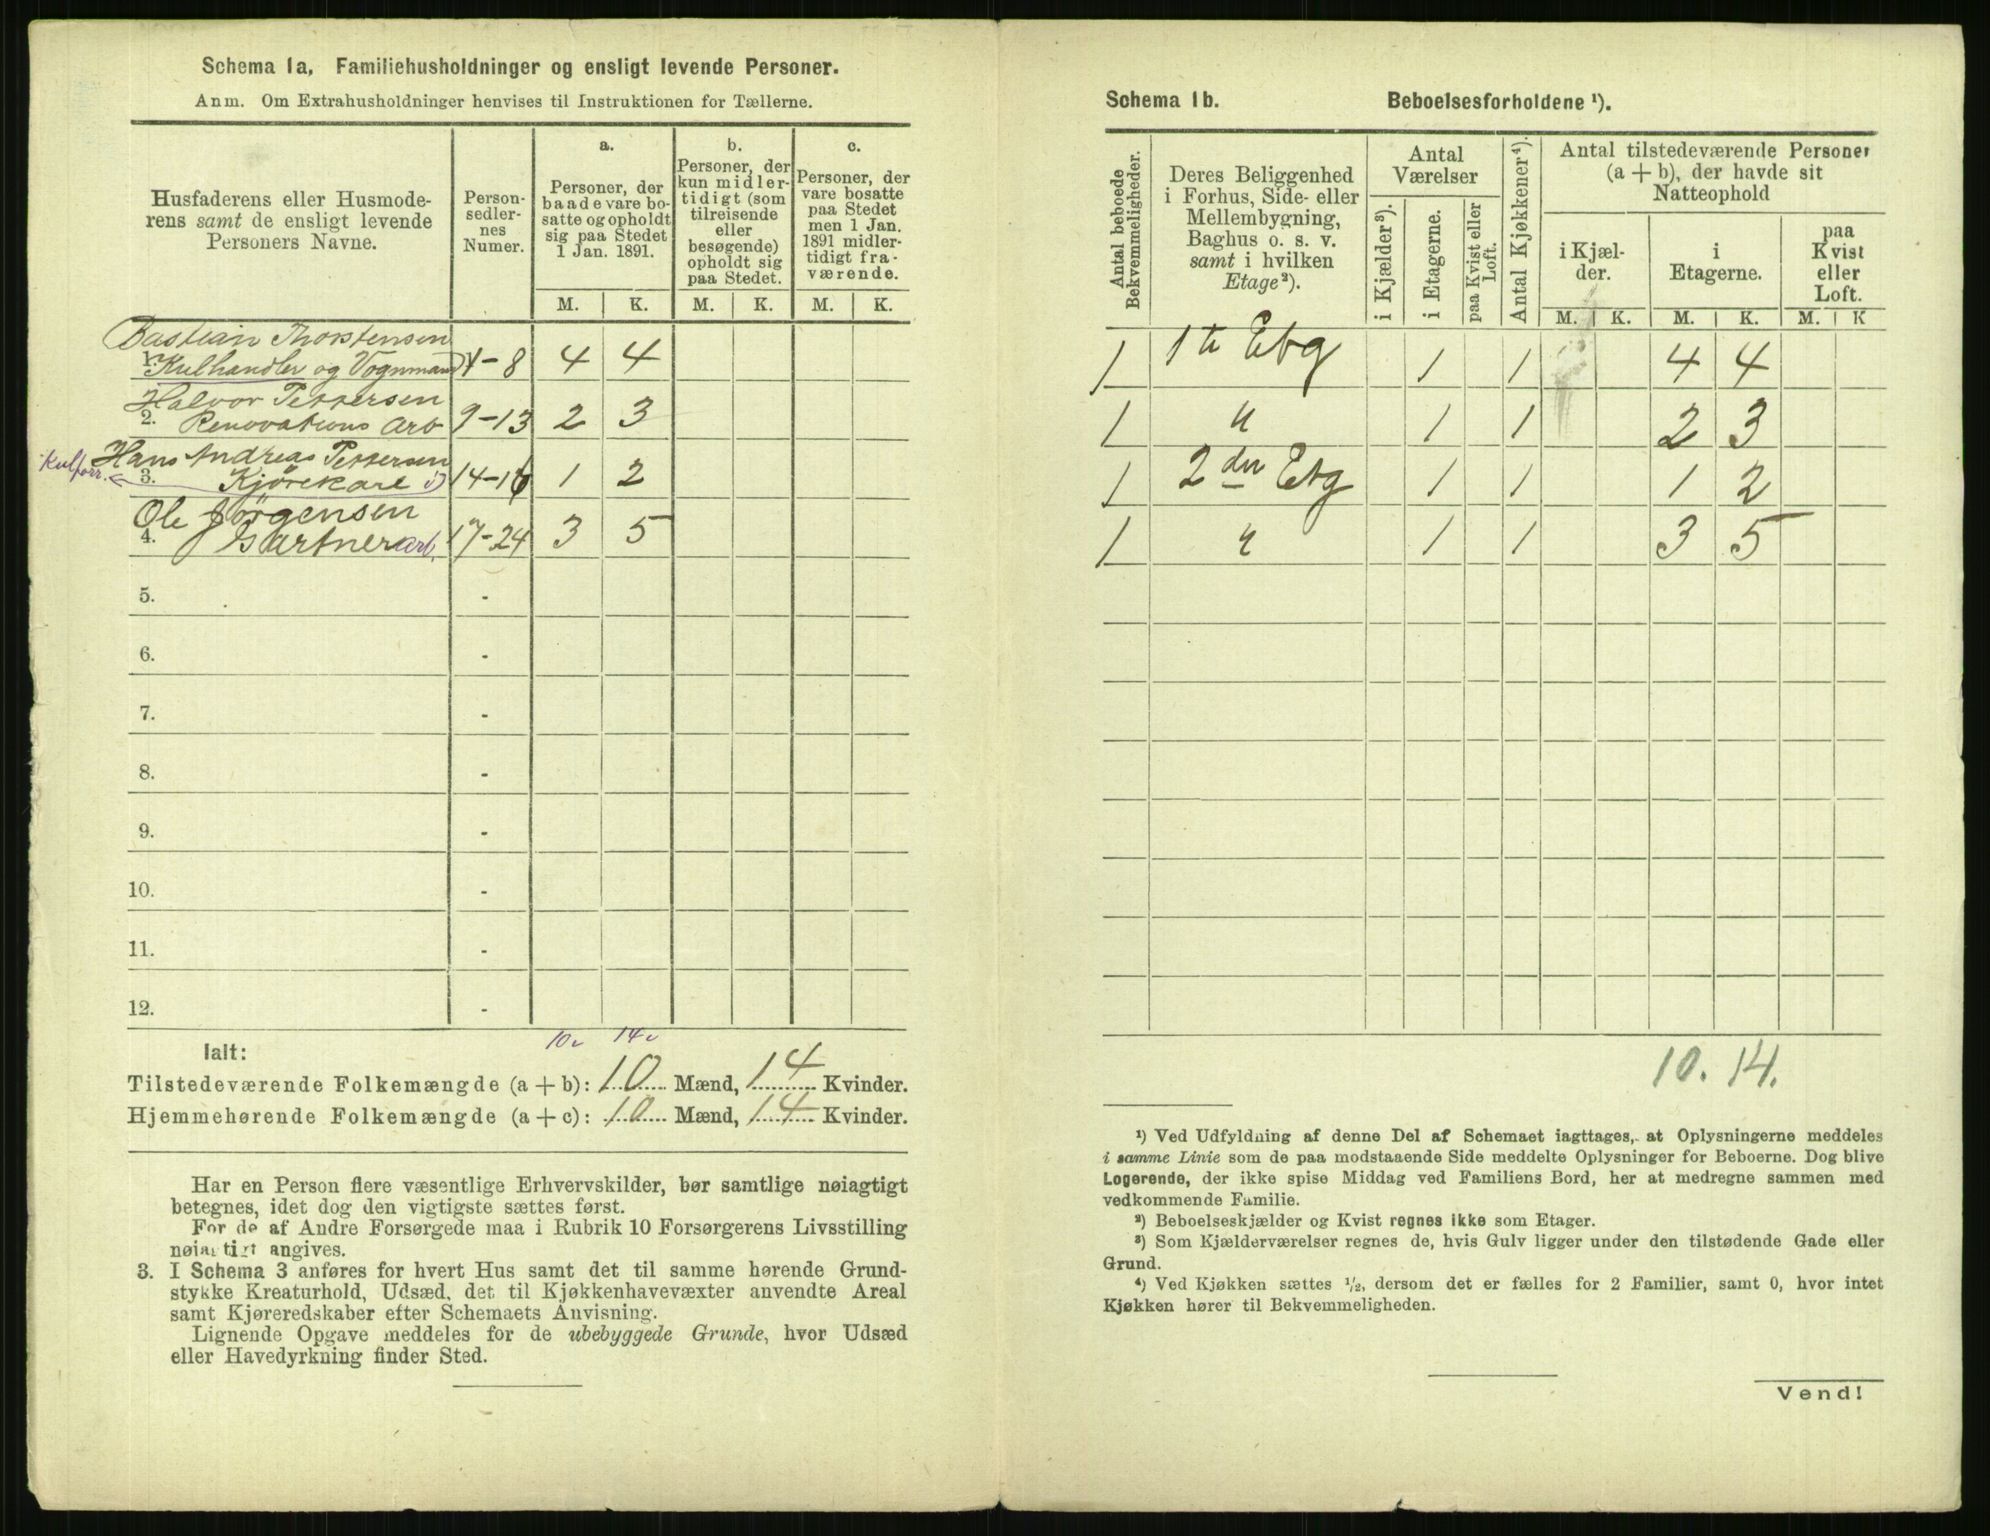 Schema 1a, Familiehusholdninger og ensligt levende Personer.
Anm. Om Extrahusholdninger henvises til Instruktionen for Tællerne.
Husfaderens eller Husmode-
rens samt de ensligt levende
Personers Navne.
Person-
sedler-
nes
Numer.
a.
Personer, der
baade vare bo-
satte og opholdt
sig paa Stedet
1 Jan. 1891.
b.
Personer, der
kun midler-
tidigt (som
tilreisende
eller
besøgende)
opholdt sig
paa Stedet.
c.
Personer, der
vare bosatte
paa Stedet
men 1 Jan.
1891 midler-
tidigt fra-
værende.
M. K. M. K. M. K.
Bastian Thorstensen
1. Kulhandler og Vognmand 1-8 4 4
Halvor Pettersen
2. Renovations Arb 9-13 2 3
Hans Andreas Pettersen
Kulforr. 3. Kjørekarl i) 14-16 1 2
Ole Jörgensen
4. Gartnerarb. 17-24 3 5
5. -
6. -
7. -
8. -
9. -
10. -
11. -
12. -
10 14
Ialt:
Tilstedeværende Folkemængde (a + b): 10 Mænd, 14 Kvinder.
Hjemmehørende Folkemængde (a + c): 10 Mænd, 14 Kvinder.
Har en Person flere væsentlige Erhvervskilder, bør samtlige nøiagtigt
betegnes, idet dog den vigtigste sættes først.
For de af Andre Forsørgede maa i Rubrik 10 Forsørgerens Livsstilling
nøiagtigt angives.
3. I Schema 3 anføres for hvert Hus samt det til samme hørende Grund-
stykke Kreaturhold, Udsæd, det til Kjøkkenhavevæxter anvendte Areal
samt Kjøreredskaber efter Schemaets Anvisning.
Lignende Opgave meddeles for de ubebyggede Grunde, hvor Udsæd
eller Havedyrkning finder Sted.
Schema 1b. Beboelsesforholdene ¹).
Antal beboede
Bekvemmeligheder.
Deres Beliggenhed
i Forhus, Side- eller
Mellembygning,
Baghus o. s. v.
samt i hvilken
Etage²).
Antal
Værelser
i Kjælder ³).
i Etagerne.
paa Kvist eller
Loft.
Antal Kjøkkener⁴).
Antal tilstedeværende Personer
(a + b), der havde sit
Natteophold
i Kjæl-
der.
i
Etagerne.
paa
Kvist
eller
Loft.
M. K. M. K. M. K
1 1te Etg 1 1 4 4
1 " 1 1 2 3
1 2den Etg 1 1 1 2
1 " 1 1 3 5
10. 14.
¹) Ved Udfyldning af denne Del af Schemaet iagttages, at Oplysningerne meddeles
i samme Linie som de paa modstaaende Side meddelte Oplysninger for Beboerne. Dog blive
Logerende, der ikke spise Middag ved Familiens Bord, her at medregne sammen med
vedkommende Familie.
²) Beboelseskjælder og Kvist regnes ikke som Etager.
³) Som Kjælderværelser regnes de, hvis Gulv ligger under den tilstødende Gade eller
Grund.
⁴) Ved Kjøkken sættes ½, dersom det er fælles for 2 Familier, samt 0, hvor intet
Kjøkken hører til Bekvemmeligheden.
Vend!